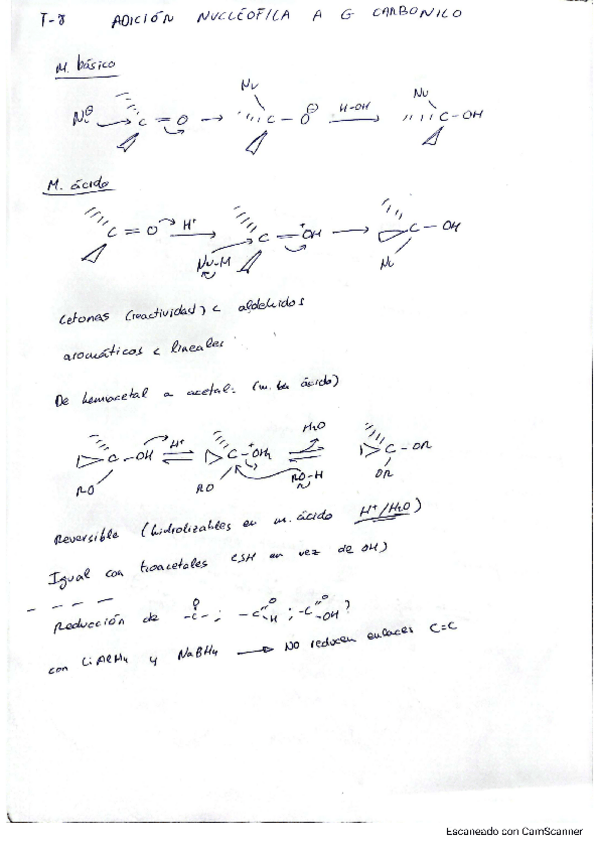 T-8 ADICIÓN NUCLEÓFILA A G CARBONILO
M. básico
Nu⊖ C=O → Nu C-O⊖ H-OH → Nu C-OH
M. ácido
C=O H⁺ → C=OH⁺ → C-OH
Nu-M Nu
Cetonas (reactividad) < aldehidos
aromáticos < lineales
De hemiacetal a acetal: (m. ácido)
H₂O
C-OH H⁺ ⇌ C-OH₂⁺ ⇌ C-OR
RO RO RO-H OR
Reversible (hidrolizables en m. ácido H⁺/H₂O)
Igual con tioacetales (SH en vez de OH)
Reducción de -C(=O)- ; -C(=O)H ; -C(=O)OH ?
con LiAlH₄ y NaBH₄ → NO reducen enlaces C=C
Escaneado con CamScanner